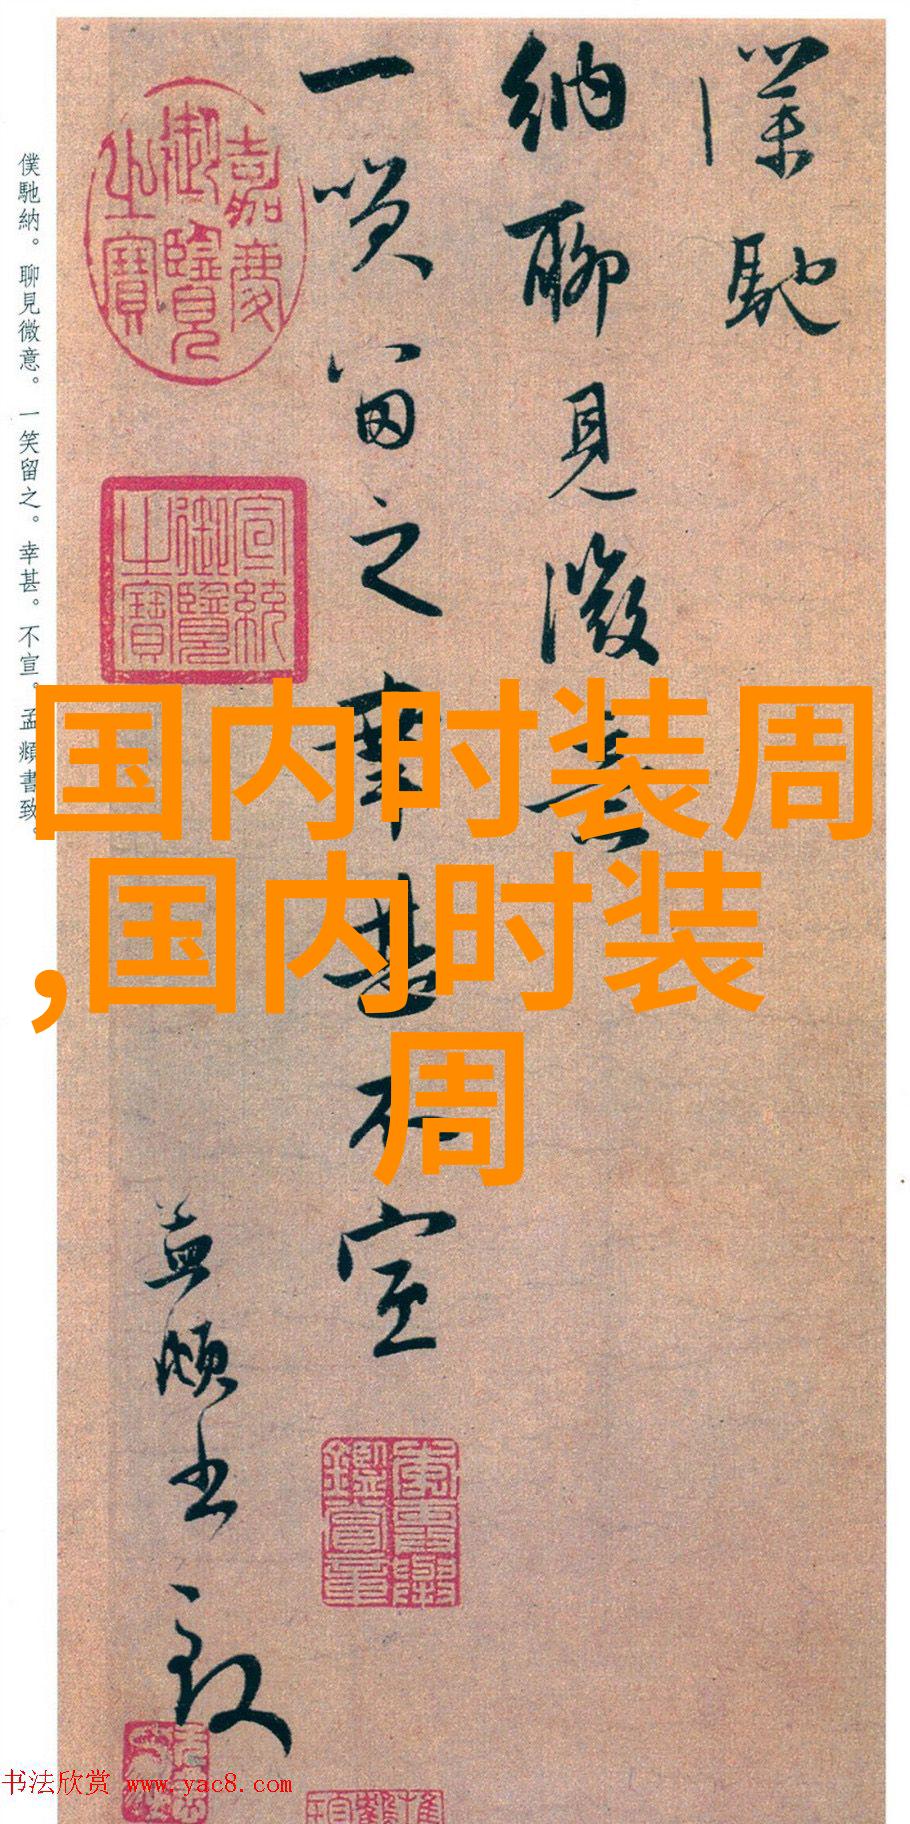 僕馳
納聊見微意
一笑留之幸甚不宣
孟頫書致
嘉慶
御覽
之寶
宣統
御覽
之寶
僕馳納。聊見微意。一笑留之。幸甚。不宣。孟頫書致。
国内时装周
,国内时装
周
书法欣赏 www.yac8.com